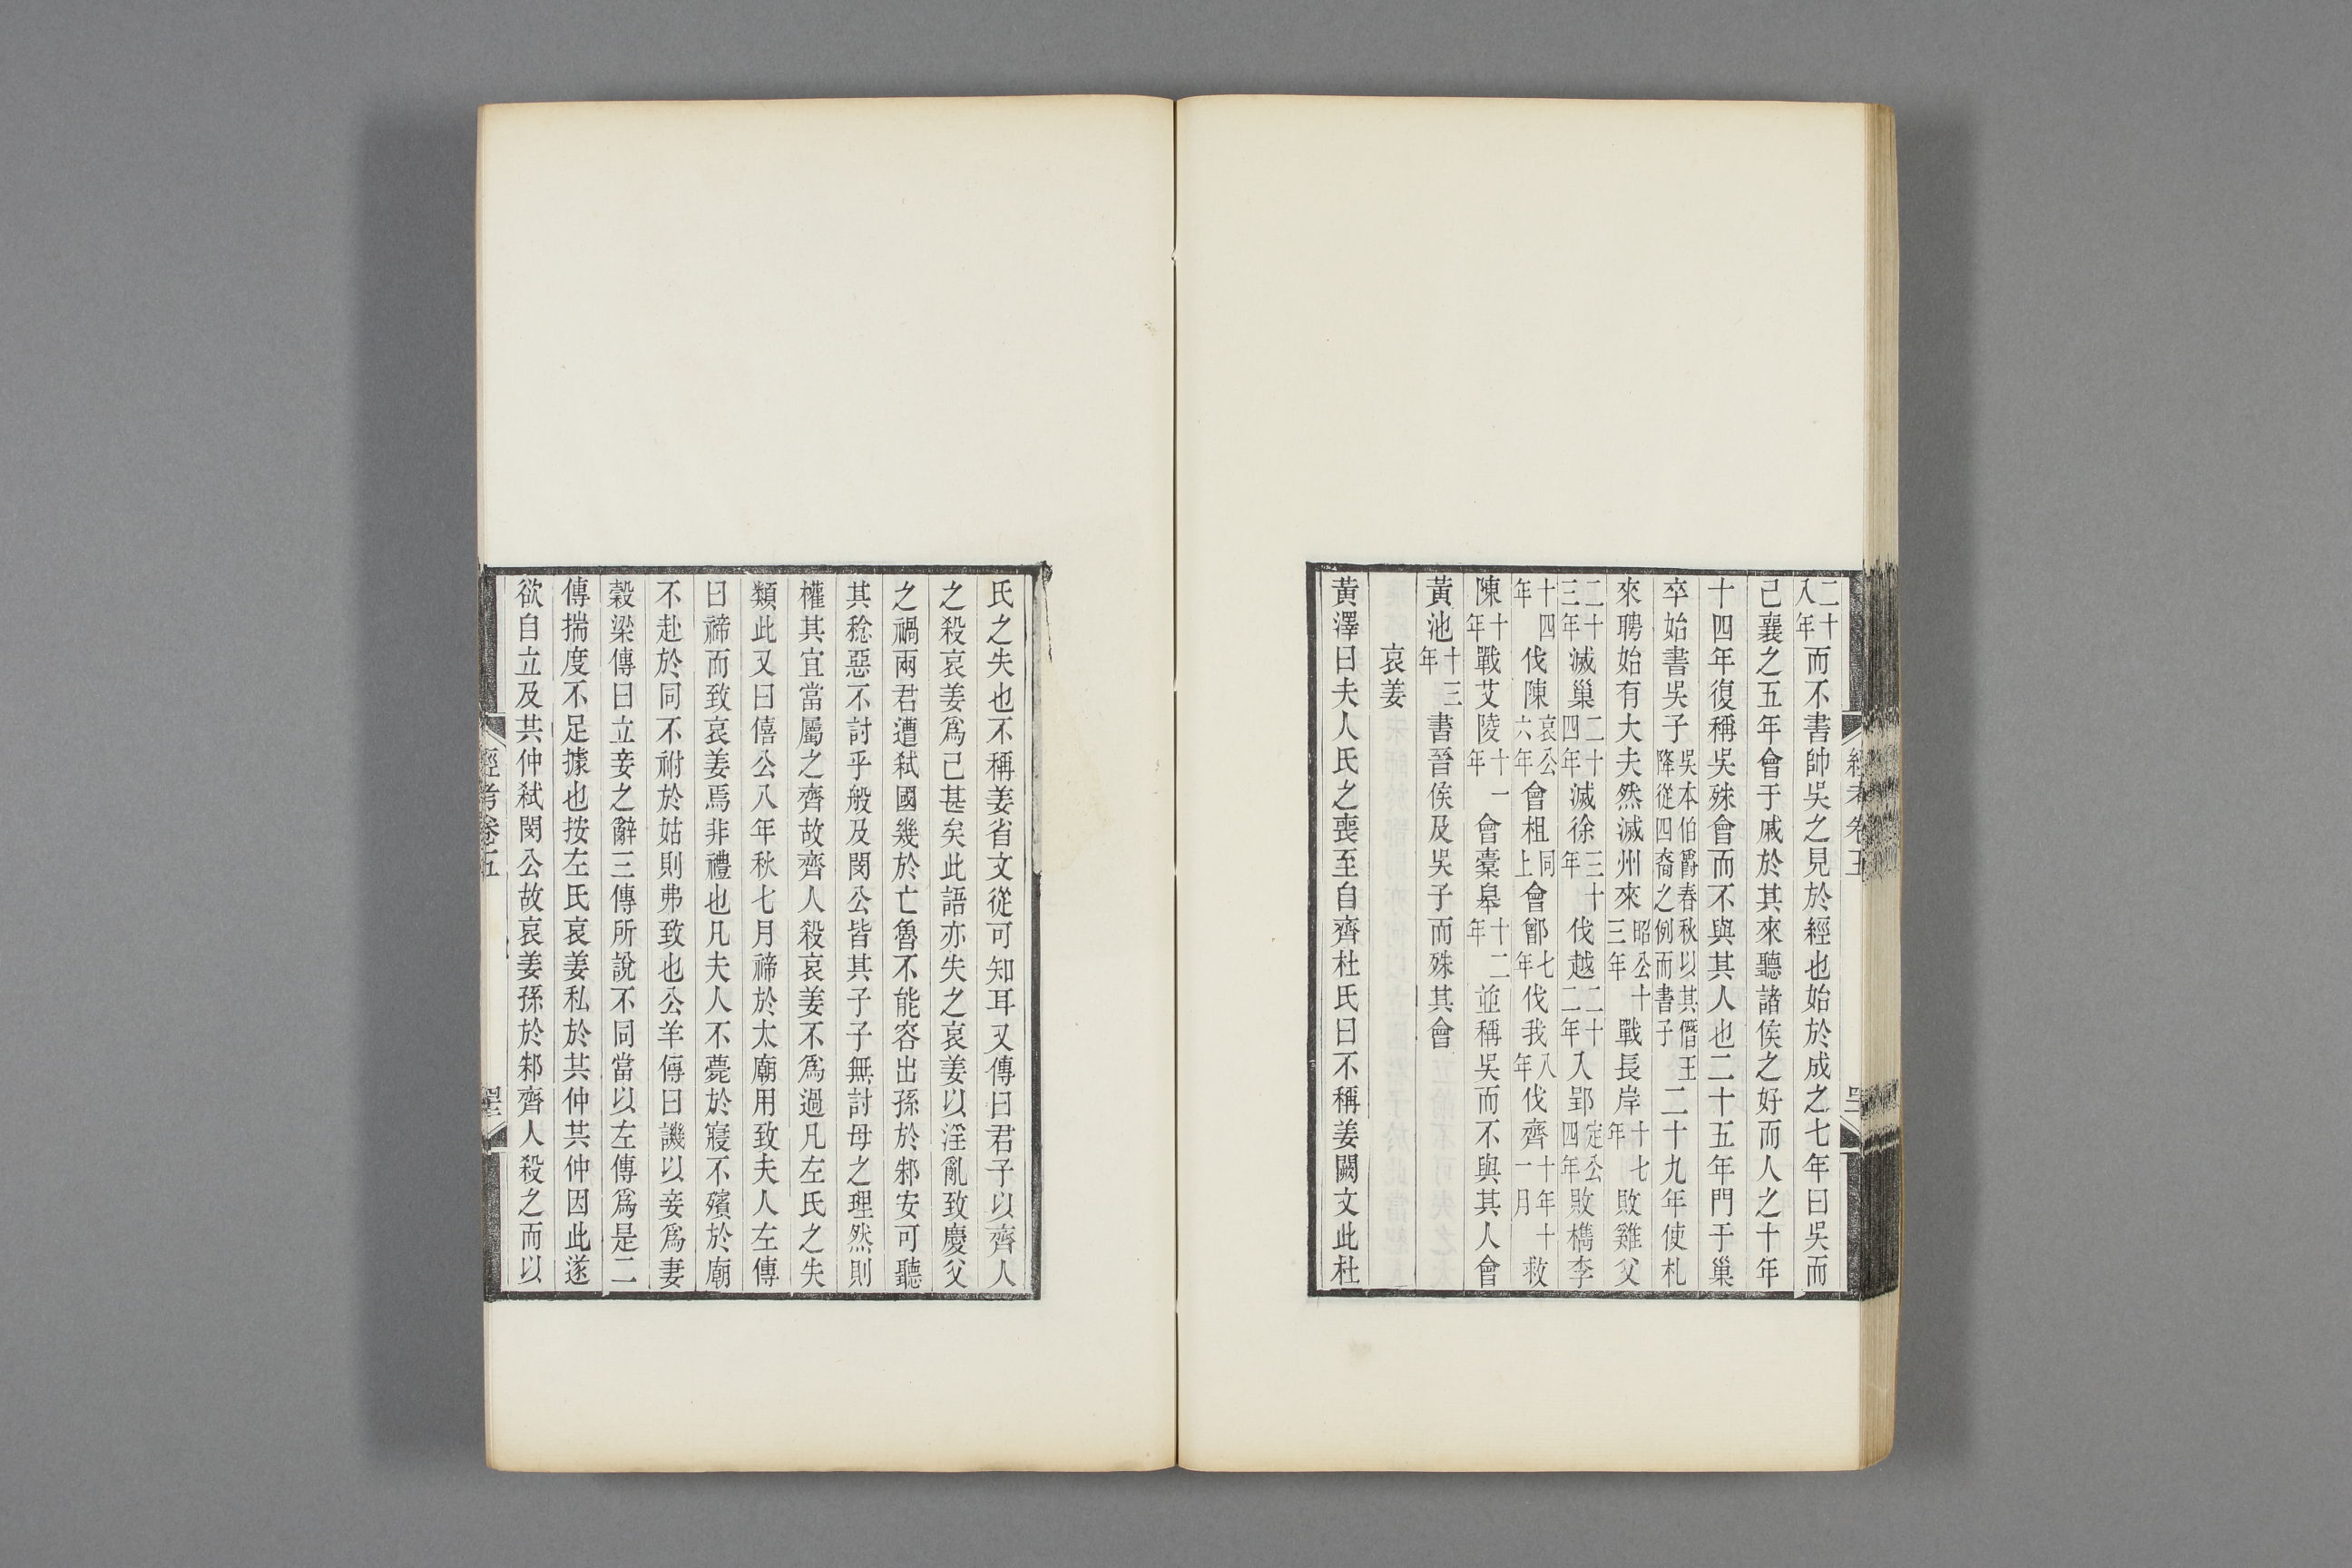 二十八年而不書帥吳之見於經也始於成之七年曰吳而
已襄之五年會于戚於其來聽諸侯之好而人之十年
十四年復稱吳殊會而不與其人也二十五年門于巢
卒始書吳子吳本伯爵春秋以其僭王降從四裔之例而書子二十九年使札
來聘始有大夫然滅州來昭公十三年戰長岸十七年敗雞父
二十三年滅巢二十四年滅徐三十年伐越三十二年入郢定公四年敗檇李
十四年伐陳哀公六年會柤同上會鄫七年伐我八年伐齊十年十一月救
陳十年戰艾陵十一年會橐皋十二年並稱吳而不與其人會
黃池十三年書晉侯及吳子而殊其會
哀姜
黃澤曰夫人氏之喪至自齊杜氏曰不稱姜闕文此杜
經考卷五
氏之失也不稱姜省文從可知耳又傳曰君子以齊人
之殺哀姜爲已甚矣此語亦失之哀姜以淫亂致慶父
之禍兩君遭弒國幾於亡魯不能容出孫於邾安可聽
其稔惡不討乎般及閔公皆其子子無討母之理然則
權其宜當屬之齊故齊人殺哀姜不爲過凡左氏之失
類此又曰僖公八年秋七月禘於太廟用致夫人左傳
曰禘而致哀姜焉非禮也凡夫人不薨於寢不殯於廟
不赴於同不祔於姑則弗致也公羊傳曰譏以妾爲妻
榖梁傳曰立妾之辭三傳所說不同當以左傳爲是二
傳揣度不足據也按左氏哀姜私於共仲共仲因此遂
欲自立及共仲弒閔公故哀姜孫於邾齊人殺之而以
經考卷五